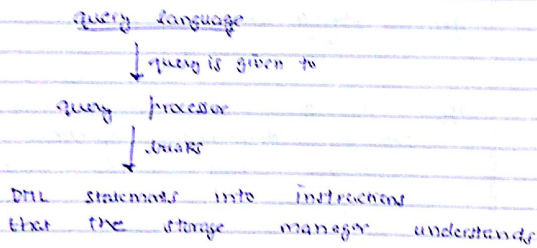 query language
query is given to
query processor
breaks
DML statements into instructions
that the storage manager understands